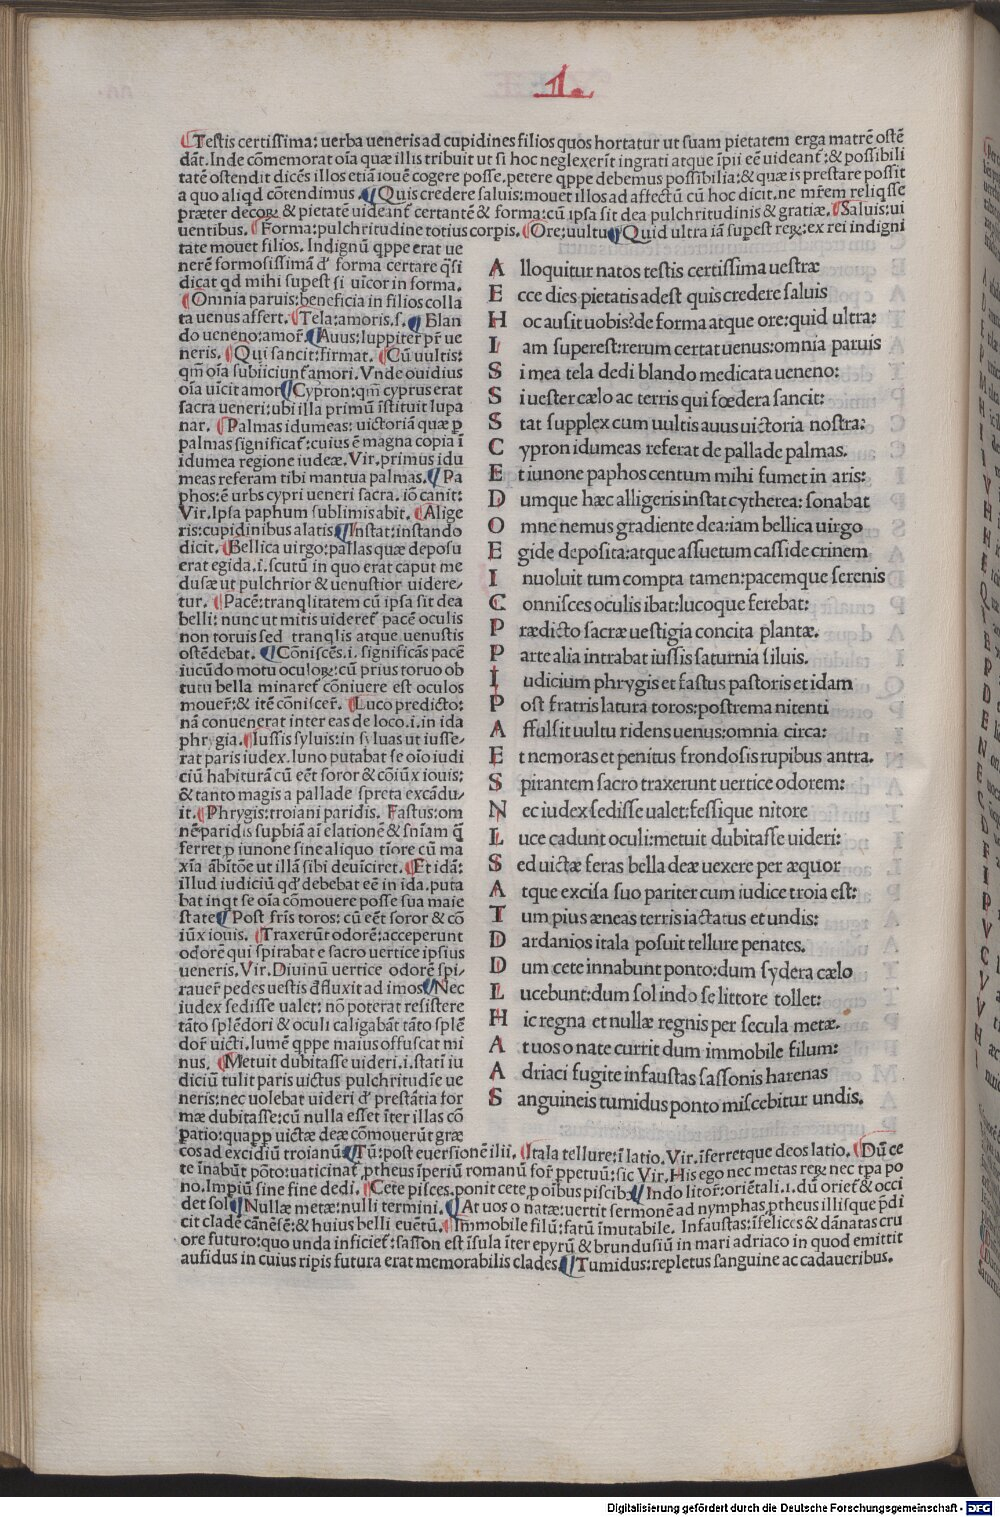 1.
Testis certissima: uerba ueneris ad cupidines filios quos hortatur ut suam pietatem erga matrē ostē
dāt. Inde cōmemorat oīa quæ illis tribuit ut si hoc neglexerīt ingrati atque īpii eē uideant᷑:& possibili
tatē ostendit dicēs illos etiā iouē cogere posse. petere qppe debemus possibilia:& quæ is prestare possit
a quo aliqd cōtendimus. Quis credere saluis: mouet illos ad affectū cū hoc dicit. ne mr̄em reliqsse
præter decoꝝ & pietatē uideant᷑ certantē & forma: cū ipsa sit dea pulchritudinis & gratiæ. Saluis: ui
uentibus. Forma: pulchritudine totius corpis. Ore: uultu Quid ultra iā supest reꝝ: ex rei indigni
tate mouet filios. Indignū qppe erat ue
nerē formosissimā d᷑ forma certare q̄si
dicat qd mihi supest si uīcor in forma.
Omnia paruis: beneficia in filios colla
ta uenus affert. Tela: amoris. s. Blan
do ueneno: amor᷑. Auus: Iuppiter pr̄ ue
neris. Qui sancit: firmat. Cū uultis:
qm̄ oīa subiiciunt᷑ amori. Vnde ouidius
oīa uīcit amor Cypron: qm̄ cyprus erat
sacra ueneri: ubi illa primū īstituit lupa
nar. Palmas idumeas: uictoriā quæ p
palmas significat᷑: cuius ē magna copia ī
idumea regione iudeæ. Vir. primus idu
meas referam tibi mantua palmas. Pa
phos: ē urbs cypri ueneri sacra. iō canit:
Vir. Ipsa paphum sublimis abit. Alige
ris: cupidinibus alatis Instat: instando
dicit. Bellica uirgo: pallas quæ deposu
erat egida. i. scutū in quo erat caput me
dusæ ut pulchrior & uenustior uidere/
tur. Pacē: tranqlitatem cū ipsa sit dea
belli: nunc ut mitis uideret᷑ pacē oculis
non toruis sed tranqlis atque uenustis
ostēdebat. Cōniscēs. i. significās pacē
iucūdo motu oculoꝝ: cū prius toruo ob
tutu bella minaret᷑ cōniuere est oculos
mouer᷑:& itē cōniscer᷑. Luco predicto:
nā conuenerat inter eas de loco. i. in ida
phrygia. Iussis syluis: in syluas ut iusse/
rat paris iudex. Iuno putabat se oīo iudi
ciū habiturā cū eēt soror & cōiūx iouis:
& tanto magis a pallade spreta excādu/
it. Phrygis: troiani paridis. Fastus: om
nē paridis supbiā aī elationē & sn̄iam q̄
ferret p iunone sine aliquo tīore cū ma
xīa ābitōe ut illā sibi deuīciret. Et idā:
illud iudiciū qd᷑ debebat eē in ida. puta
bat inqt se oīa cōmouere posse sua maie
state Post fr̄is toros: cū eēt soror & cō
iūx iouis. Traxerūt odorē: acceperunt
odorē qui spirabat e sacro uertice ipsius
ueneris. Vir. Diuinū uertice odorē spi/
rauer᷑ pedes uestis d̄fluxit ad imos Nec
iudex sedisse ualet: nō poterat resistere
tāto splēdori & oculi caligabāt tāto splē
dor᷑ uicti. lumē qppe maius offuscat mi
nus. Metuit dubitasse uideri. i. stati iu
diciū tulit paris uictus pulchritudīe ue
neris: nec uolebat uideri d᷑ prestātia for
mæ dubitasse: cū nulla esset īter illas cō
patio: qua pp uictæ deæ cōmouerūt græ
cos ad excidiū troianū Tū: post euersionē ilii. Itala tellure: ī latio. Vir. īferretque deos latio. Dū ce
te īnabūt pōto: uaticinat᷑ ptheus īperiū romanū for᷑ ppetuū: sic Vir. His ego nec metas reꝝ nec tpa po
no. Impiū sine fine dedi. Cete pisces. ponit cete p oībus piscibꝫ Indo litor᷑: oriētali. i. dū oriet᷑ & occi
det sol Nullæ metæ: nulli termini. At uos o natæ: uertit sermonē ad nymphas ptheus illisque pdi
cit cladē cānēsē:& huius belli euētū. Immobile filū: fatū īmutabile. Infaustas: īfelices & dānatas cru
ore futuro: quo unda inficiet᷑: sasson est īsula īter epyrū & brundusiū in mari adriaco in quod emittit
aufidus in cuius ripis futura erat memorabilis clades Tumidus: repletus sanguine ac cadaueribus.
A lloquitur natos testis certissima uestræ
E cce dies pietatis adest quis credere saluis
H oc ausit uobis? de forma atque ore: quid ultra:
I am superest: rerum certat uenus: omnia paruis
S i mea tela dedi blando medicata ueneno:
S i uester cælo ac terris qui fœdera sancit:
S tat supplex cum uultis auus uictoria nostra:
C ypron idumeas referat de pallade palmas.
E t iunone paphos centum mihi fumet in aris:
D umque hæc alligeris instat cytherea: sonabat
O mne nemus gradiente dea: iam bellica uirgo
E gide deposita: atque assuetum casside crinem
I nuoluit tum compta tamen: pacemque serenis
C onnisces oculis ibat: lucoque ferebat:
P rædicto sacræ uestigia concita plantæ.
P arte alia intrabat iussis saturnia siluis.
I udicium phrygis et fastus pastoris et idam
P ost fratris latura toros: postrema nitenti
A ffulsit uultu ridens uenus: omnia circa:
E t nemora et penitus frondosis rupibus antra.
S pirantem sacro traxerunt uertice odorem:
N ec iudex sedisse ualet: fessique nitore
L uce cadunt oculi: metuit dubitasse uideri:
S ed uictæ feras bella deæ uexere per æquor
A tque excisa suo pariter cum iudice troia est:
T um pius æneas terris iactatus et undis:
D ardanios itala posuit tellure penates.
D um cete innabunt ponto: dum sydera cælo
L ucebunt: dum sol indo se littore tollet:
H ic regna et nullæ regnis per secula metæ.
A t uos o nate currit dum immobile filum:
A driaci fugite infaustas sassonis harenas
S anguineis tumidus ponto miscebitur undis.
Digitalisierung gefördert durch die Deutsche Forschungsgemeinschaft - DFG